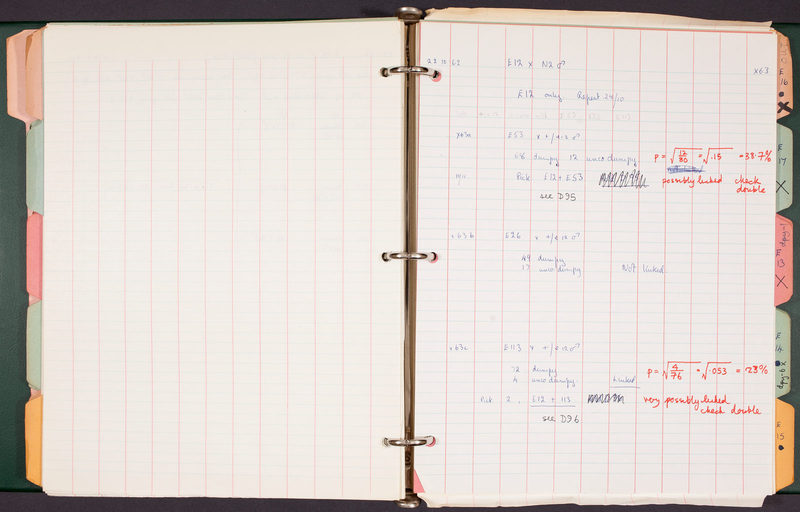 22 10 62 E12 x N2 ♂ x63
E12 only Repeat 24/10
x63a E53 x +/e12 ♂
68 dumpy 12 unco dumpy p = √12/80 = √.15 = 38.7%
Pick E12 + E53 possibly linked check
double
see D95
x63b E26 x +/e12 ♂
49 dumpy
17 unco dumpy Not linked
x63c E113 x +/e12 ♂
72 dumpy p = √4/76 = √.053 = 23%
4 unco dumpy Linked
Pick 2, E12 + 113 very possibly linked
check double
see D96
E
16
X
E
17
X
dpy-1
E
13
X
E
14
dpy-6 X
E
15